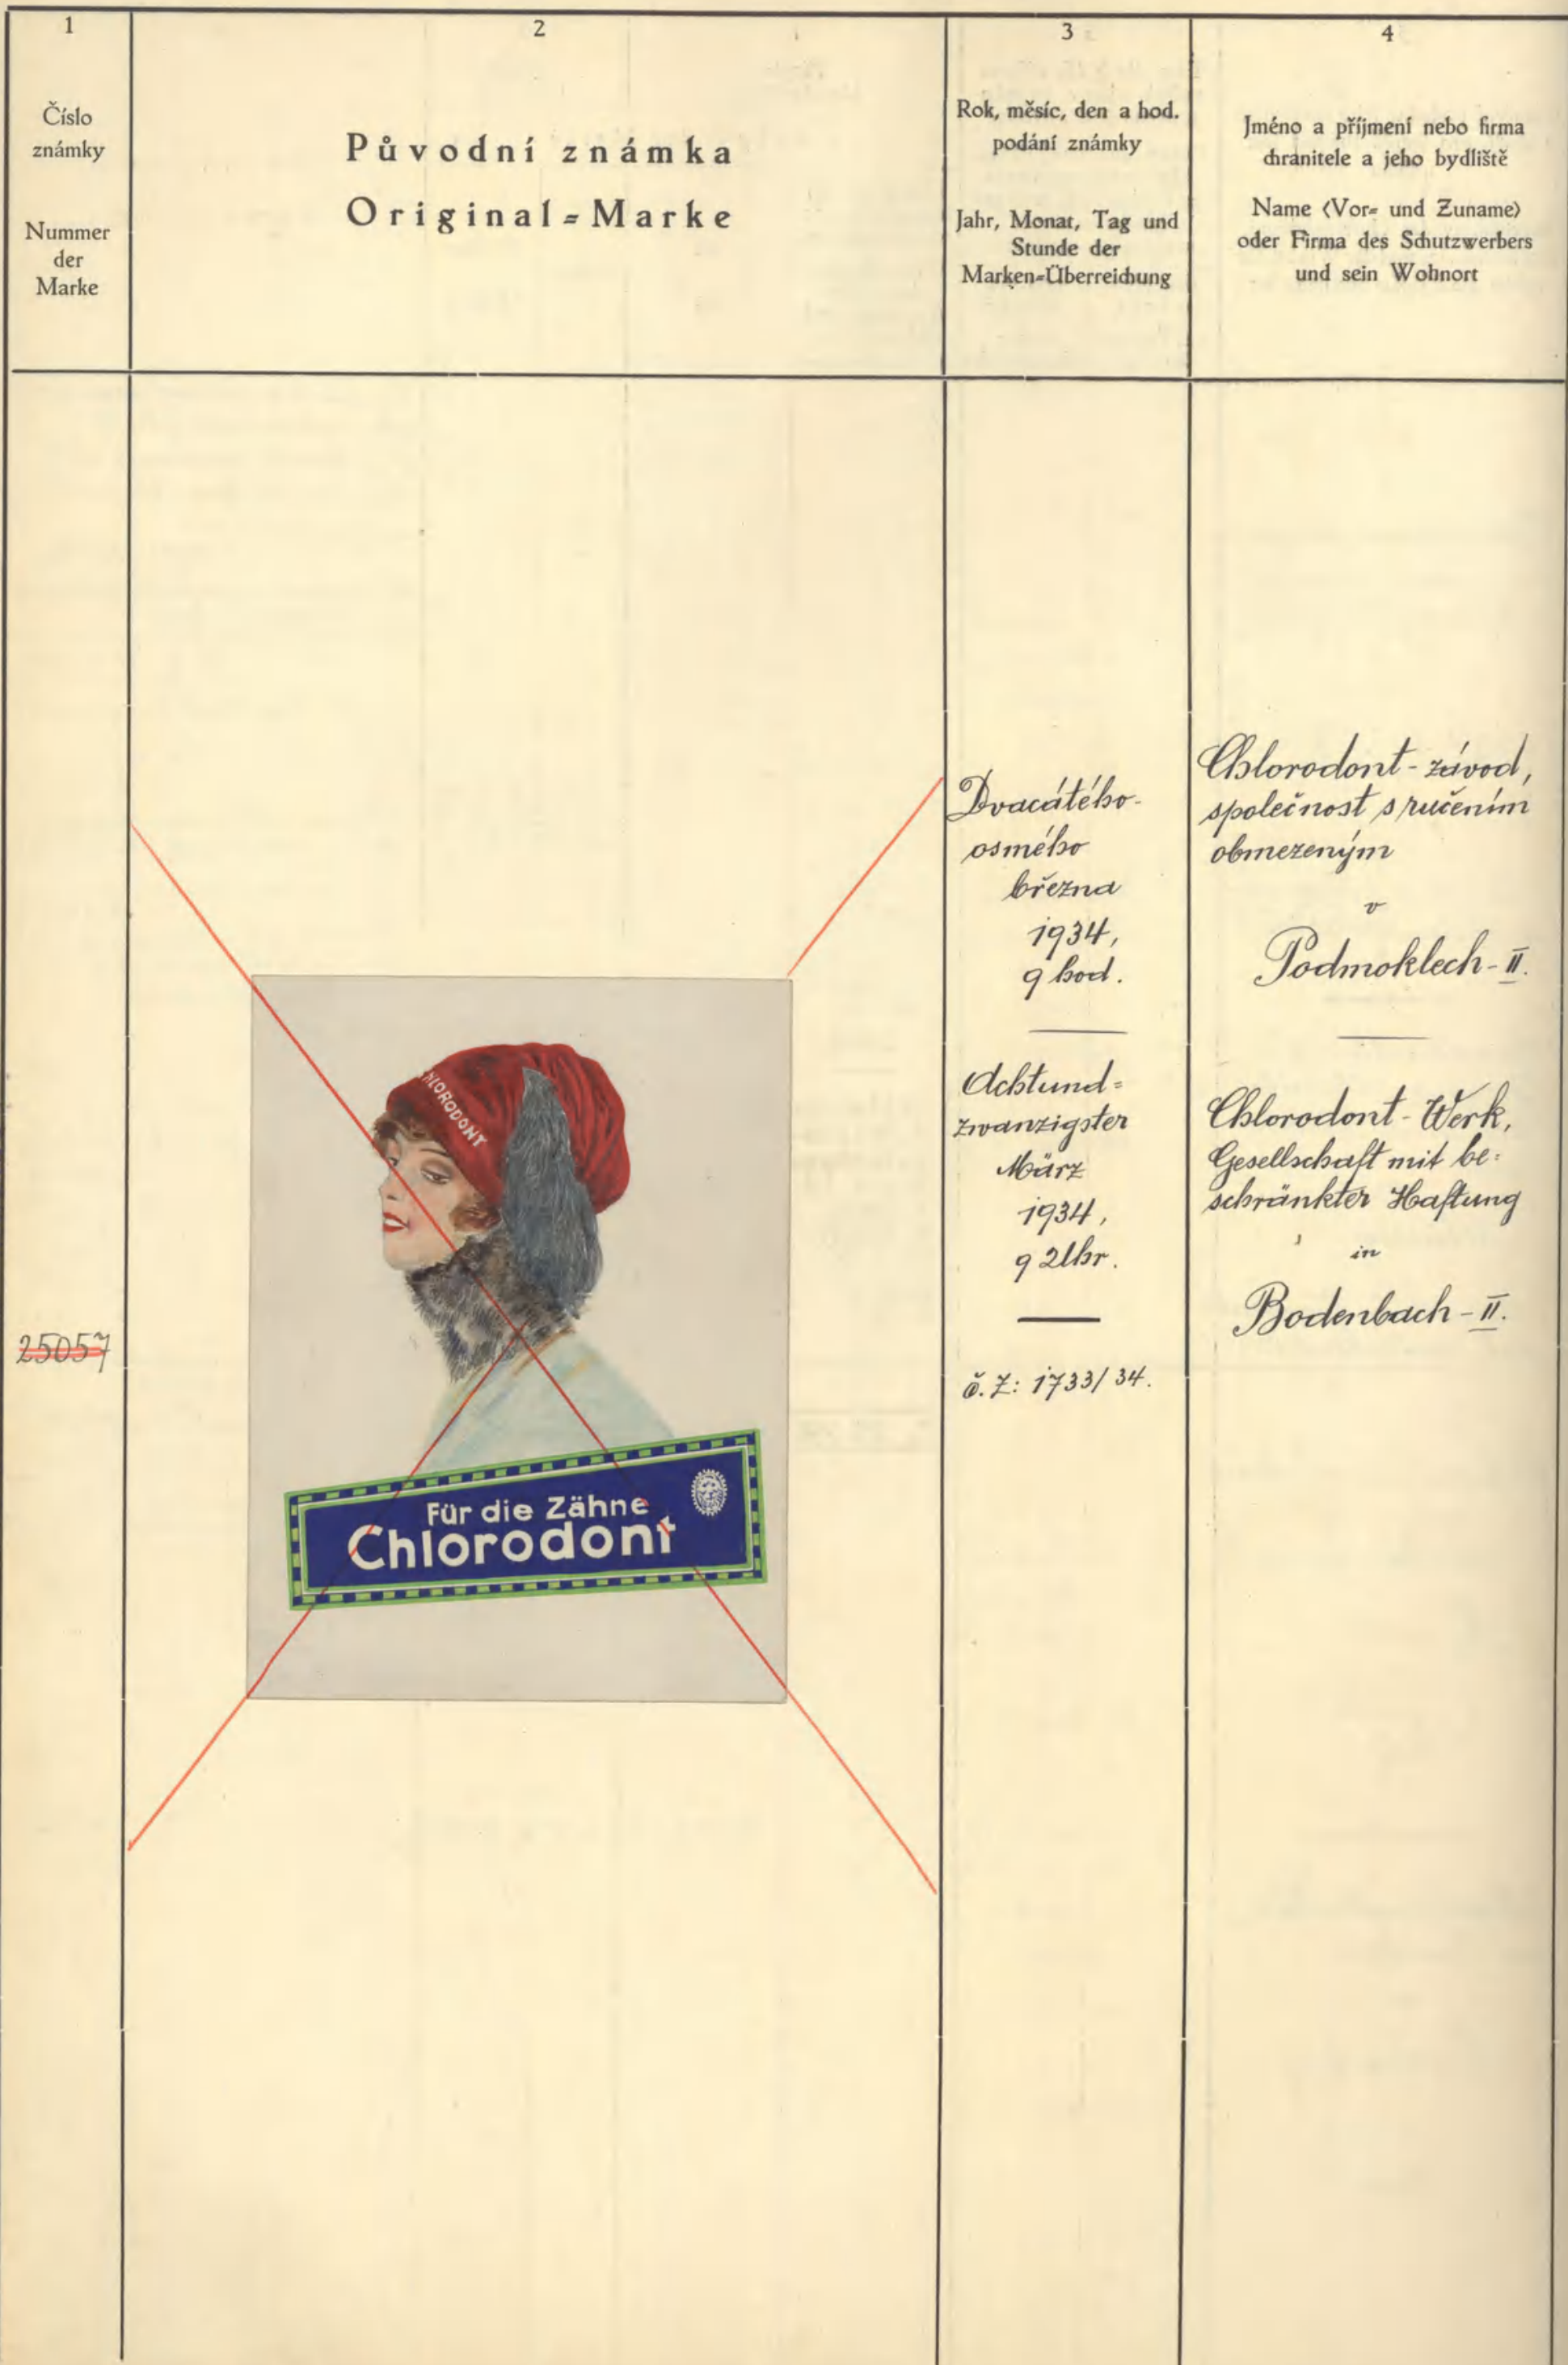 1
Číslo
známky
Nummer
der
Marke
2
Původní známka
Original=Marke
3
Rok, měsíc, den a hod.
podání známky
Jahr, Monat, Tag und
Stunde der
Marken=Überreichung
4
Jméno a příjmení nebo firma
chranitele a jeho bydliště
Name (Vor= und Zuname)
oder Firma des Schutzwerbers
und sein Wohnort
25057
CHLORODONT
Für die Zähne
Chlorodont
Dvacátého-
osmého
března
1934,
9 hod.
Achtund=
zwanzigster
März
1934,
9 Uhr.
č. Z: 1733/34.
Chlorodont-závod,
společnost s ručením
obmezeným
v
Podmoklech-II.
Chlorodont-Werk,
Gesellschaft mit be=
schränkter Haftung
in
Bodenbach-II.